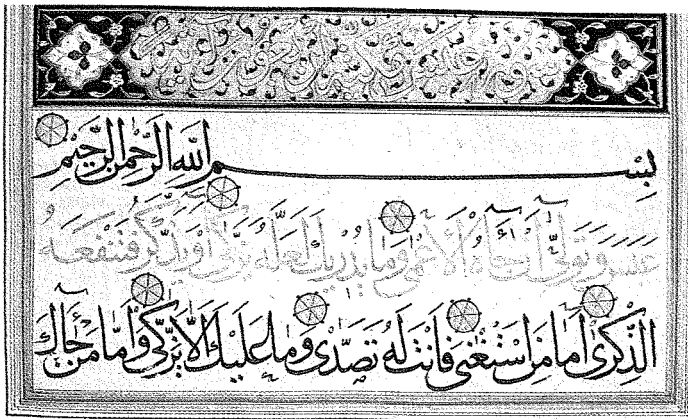 بِسْمِ اللَّهِ الرَّحْمَنِ الرَّحِيمِ
عَبَسَ وَتَوَلَّى أَنْ جَاءَهُ الْأَعْمَى وَمَا يُدْرِيكَ لَعَلَّهُ يَزَّكَّى أَوْ يَذَّكَّرُ فَتَنْفَعَهُ
الذِّكْرَى أَمَّا مَنِ اسْتَغْنَى فَأَنْتَ لَهُ تَصَدَّى وَمَا عَلَيْكَ أَلَّا يَزَّكَّى وَأَمَّا مَنْ جَاءَكَ